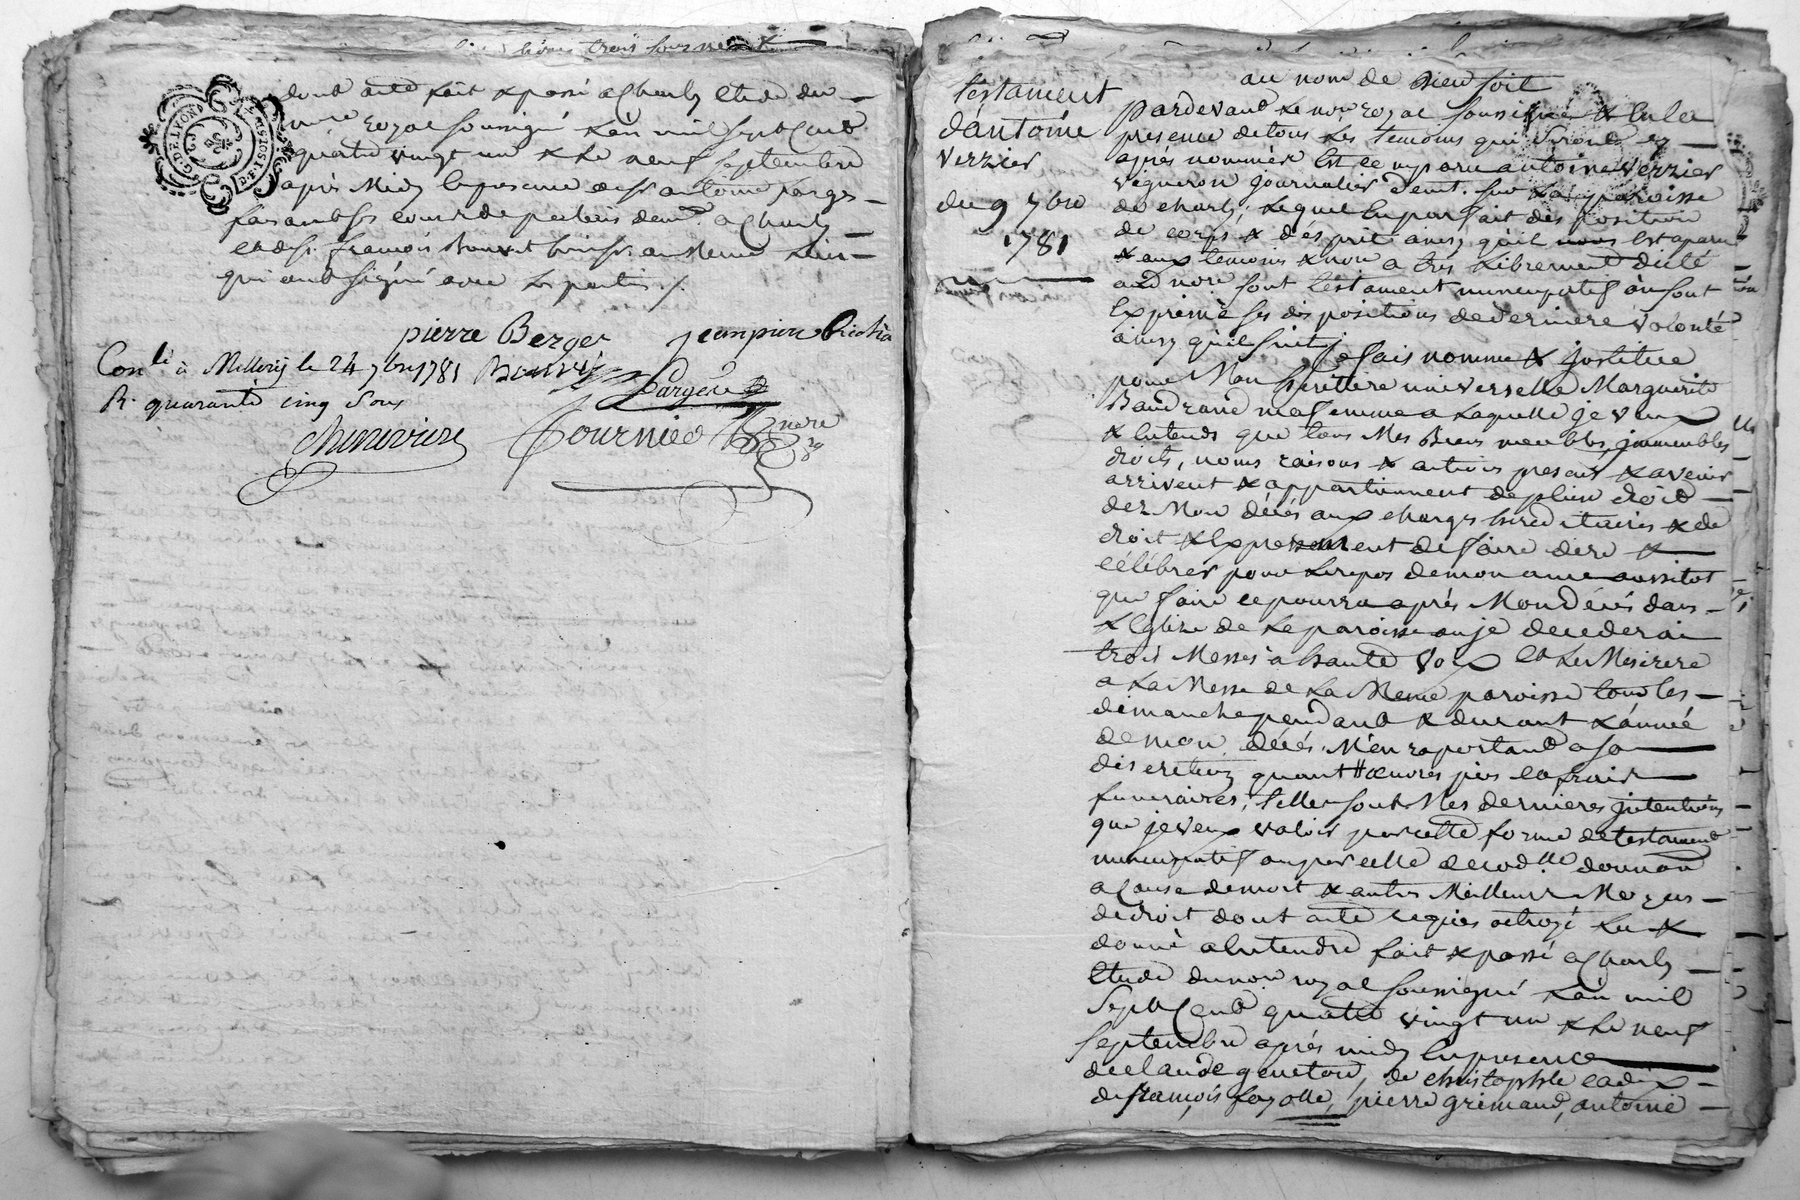 livres trois sous neuf
G. DE LYON
dont acte fait & passé a Charly etude du
nore royal soussigné L'an mil sept Cent
quatre vingt un & Le neuf septembre
après Midy En presence de sr antoine
demt a Charly
et de sr. françois huissr. au meme Lieu
qui ont signé avec Les parties ./.
pierre Berger jean piere
Conlé à Millery le 24 7bre 1781
R. quarante cinq sous
Chinevière fournier Nore
testament
d'antoine
verzier
du 9 7bre
1781
au nom de Dieu soit
Pardevant Le nore royal soussigné & En la
presence de tous Les temoins qui seront cy
après nommés Est comparu antoine verzier
vigneron journalier demt. sur La paroisse
de charly, Lequel En parfait disposition
de corps & d'esprit ainsy qu'il nous Est aparu
& aux temoins & nore a très Librement dicté
aud nore sont testament nuncupatif où sont
Exprimé ses dispositions de derniere volonté
ainsy qu'il suit, je fais nomme & jnstitue
pour Mon heritiere universelle Marguerite
Baudrand ma femme a Laquelle je veux
& Entends que tous Mes Biens meubles, jmmeubles
droits, noms raisons & actions presents & avenir
arrivent & appartiennent de plein droit
dez Mon décés aux charges hereditaires & de
droit & Expressement de faire dire &
célébrer pour Le repos de mon ame aussitot
que faire ce pourra après Mon décés dans
L'Eglise de La paroisse ou je decederai
trois Messes a haute voix et Le Miserere
a La Messe de La Meme paroisse tous les
dimanche pendant & durant L'année
de mon décés. M'en raportant a sa
discretion quant aux œuvres pies et frais
funeraires, telles sont Mes dernieres jntentions
que je veux valoir par cette forme de testament
nuncupatif ou par celle de codlle donnon
a Cause de mort & autres Meilleurs Moyens
de droit dont acte requis octroyé Lu &
donné a Entendre fait & passé a Charly
Etude du nore royal soussigné L'an mil
Sept Cent quatre vingt un & Le neuf
septembre après midy En presence
de claude geneton, de christophle cadix
de françois fayolle, pierre grimaud, antoine